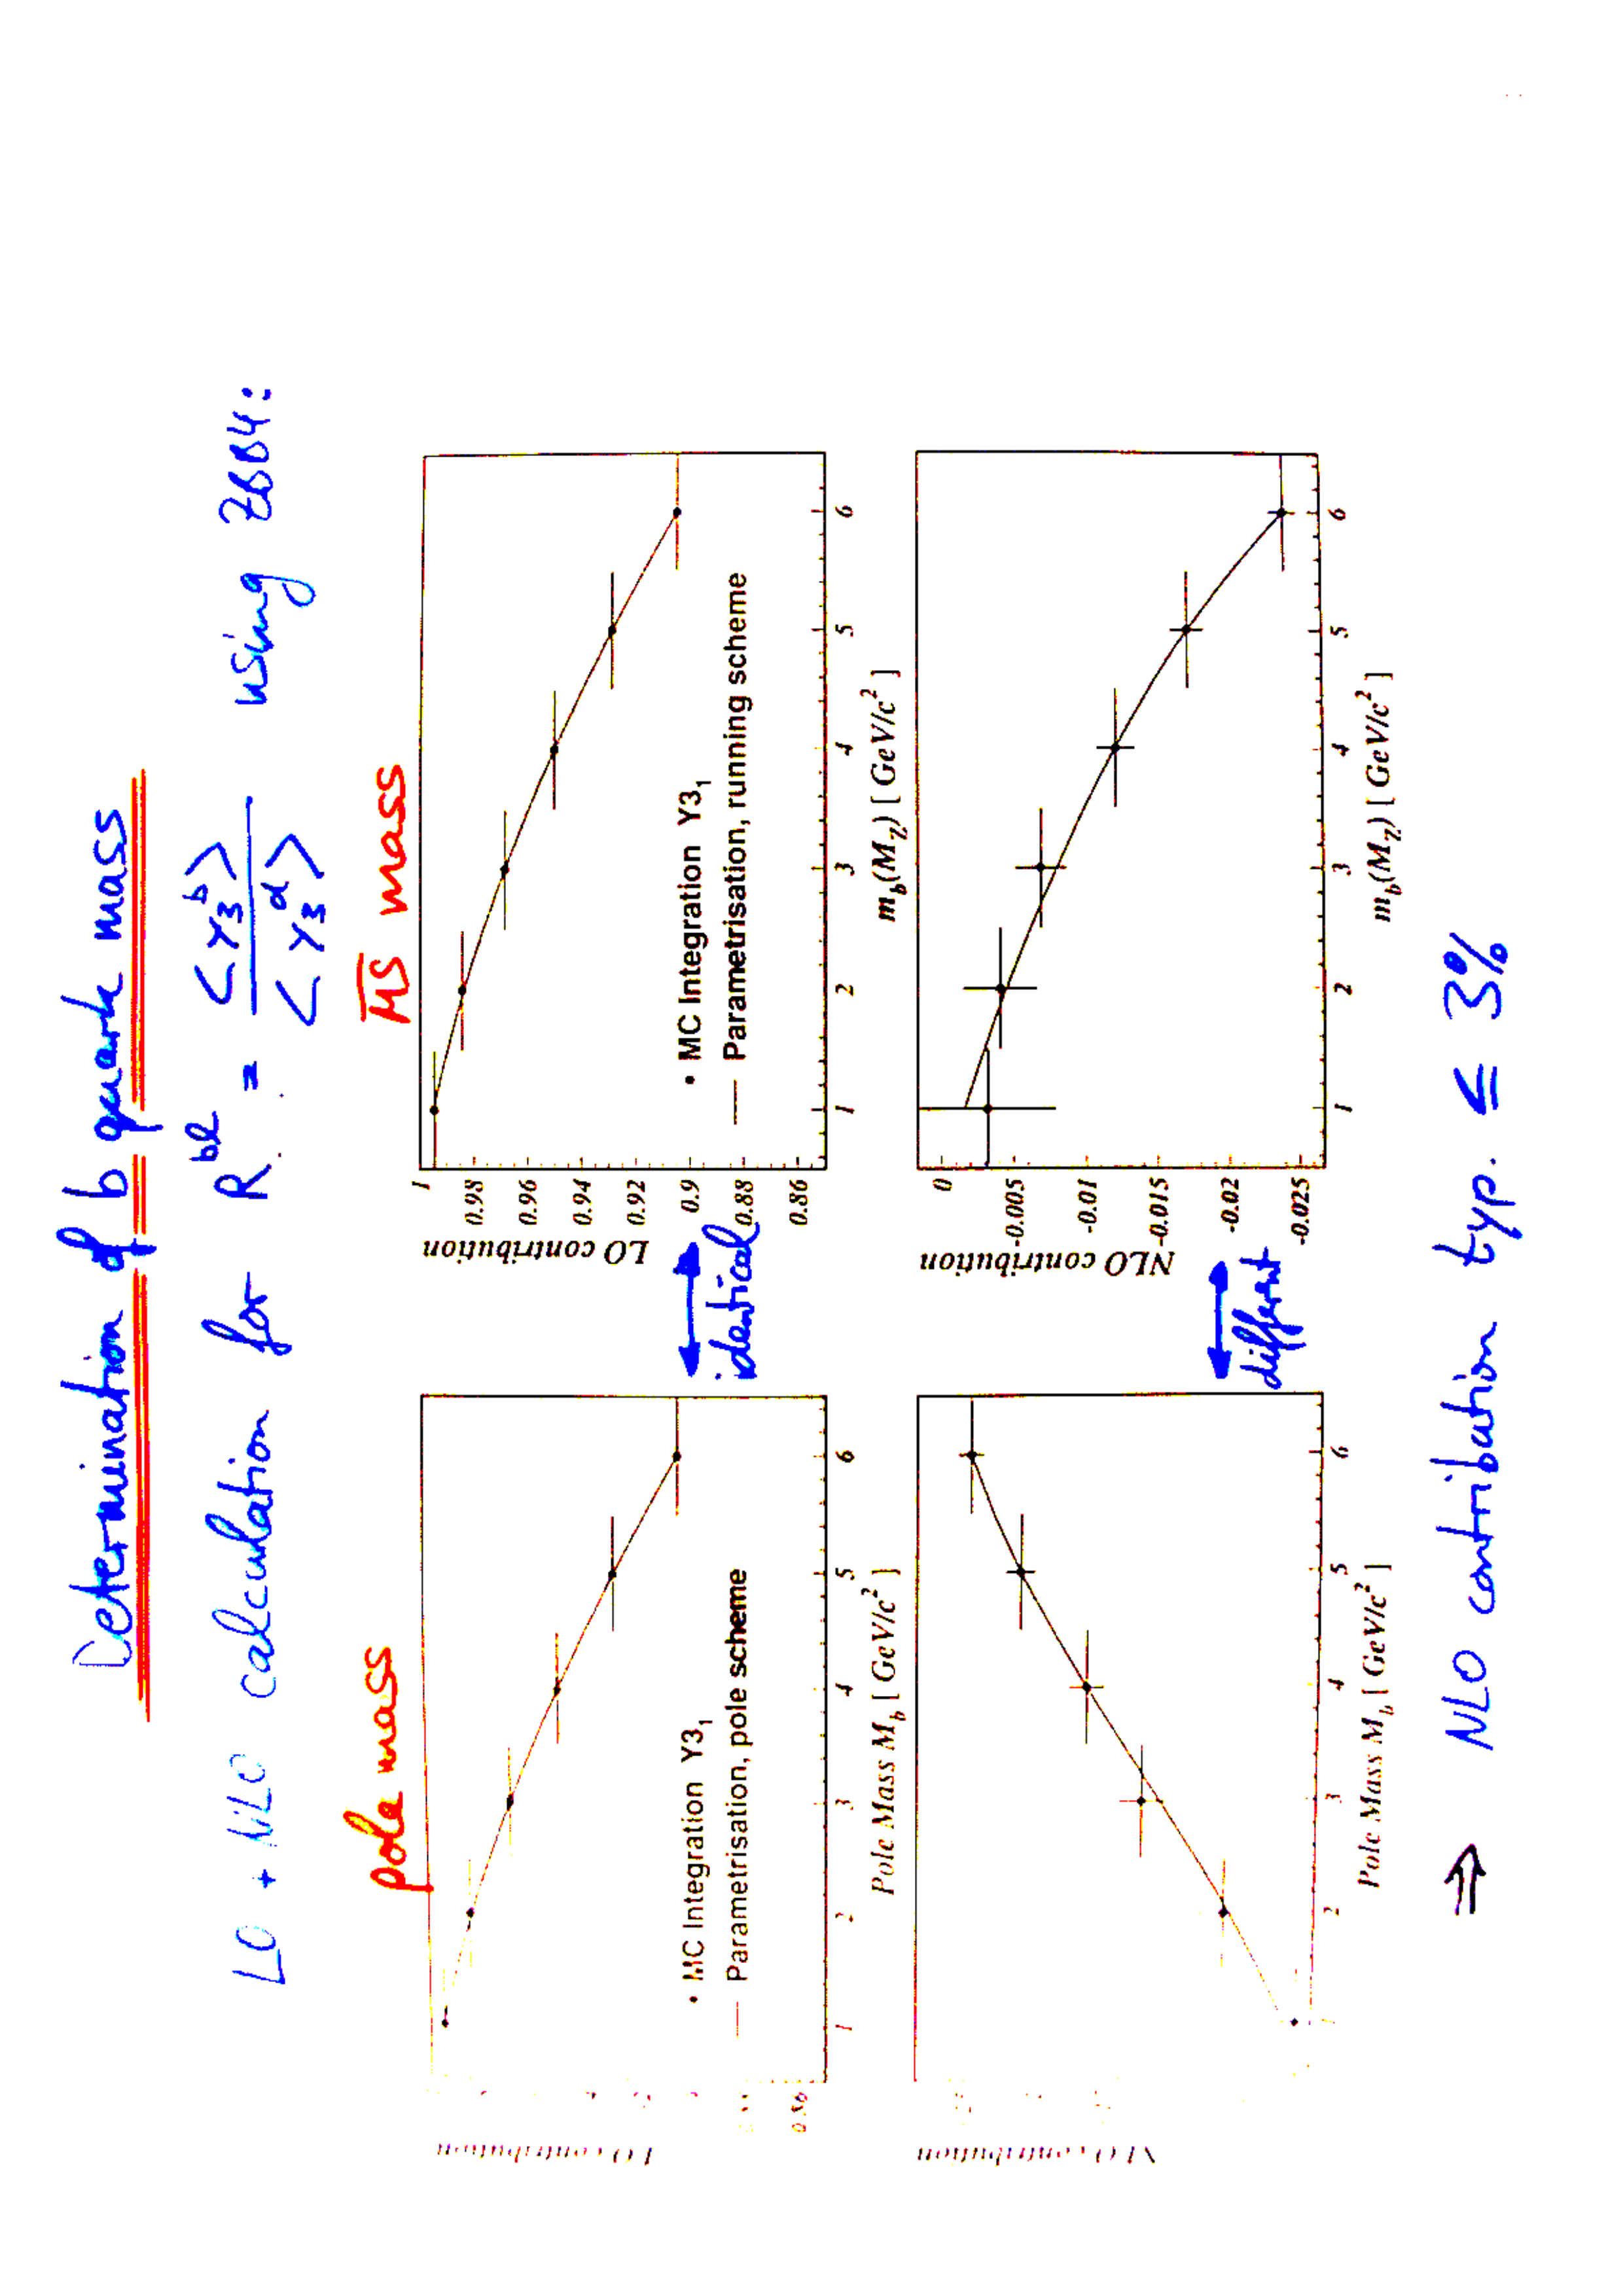 Determination of b quark mass
LO + NLO calculation for R^bl = <y_3^b> / <y_3^d> using ZBB4:
pole mass
M̅S̅ mass
LO contribution
0.86
• MC Integration Y3_1
— Parametrisation, pole scheme
1 2 3 4 5 6
Pole Mass M_b [ GeV/c^2 ]
↔
identical
LO contribution
1
0.98
0.96
0.94
0.92
0.9
0.88
0.86
• MC Integration Y3_1
— Parametrisation, running scheme
1 2 3 4 5 6
m_b(M_Z) [ GeV/c^2 ]
NLO contribution
1 2 3 4 5 6
Pole Mass M_b [ GeV/c^2 ]
↔
different
NLO contribution
0
-0.005
-0.01
-0.015
-0.02
-0.025
1 2 3 4 5 6
m_b(M_Z) [ GeV/c^2 ]
⇒ NLO contribution typ. ≤ 3%